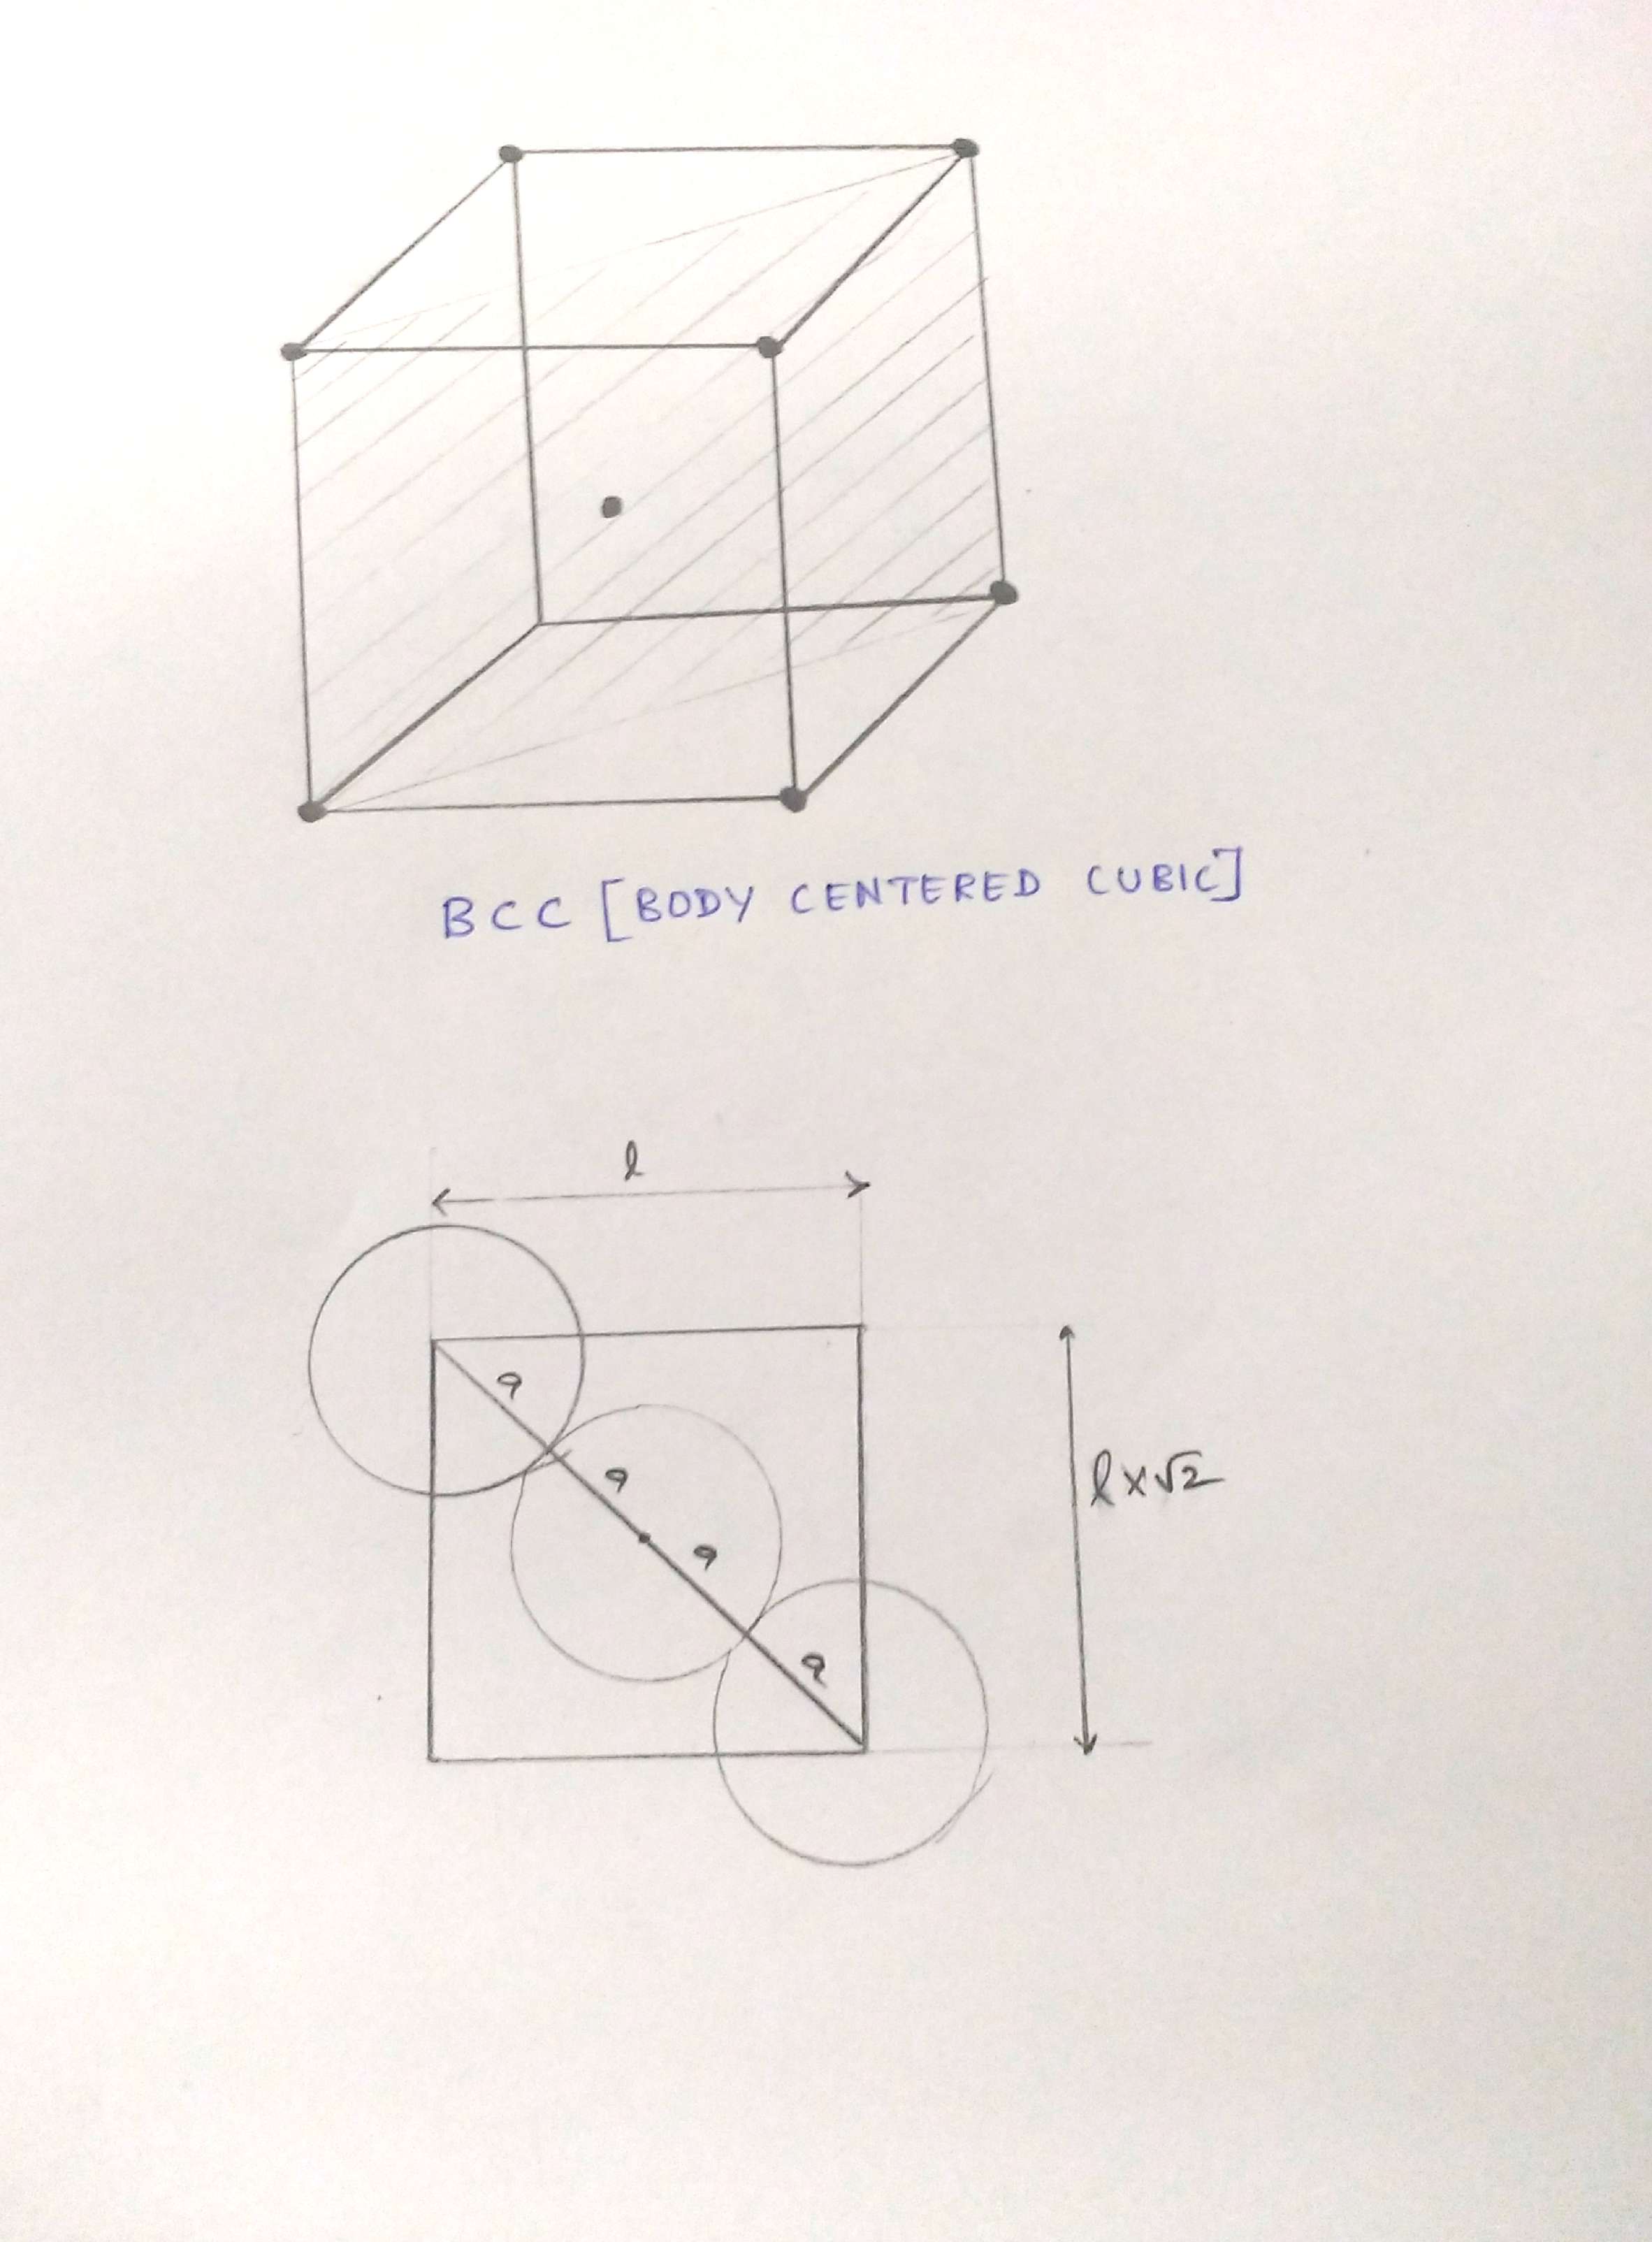 BCC [BODY CENTERED CUBIC]
l
a
a
l×√2
a
a